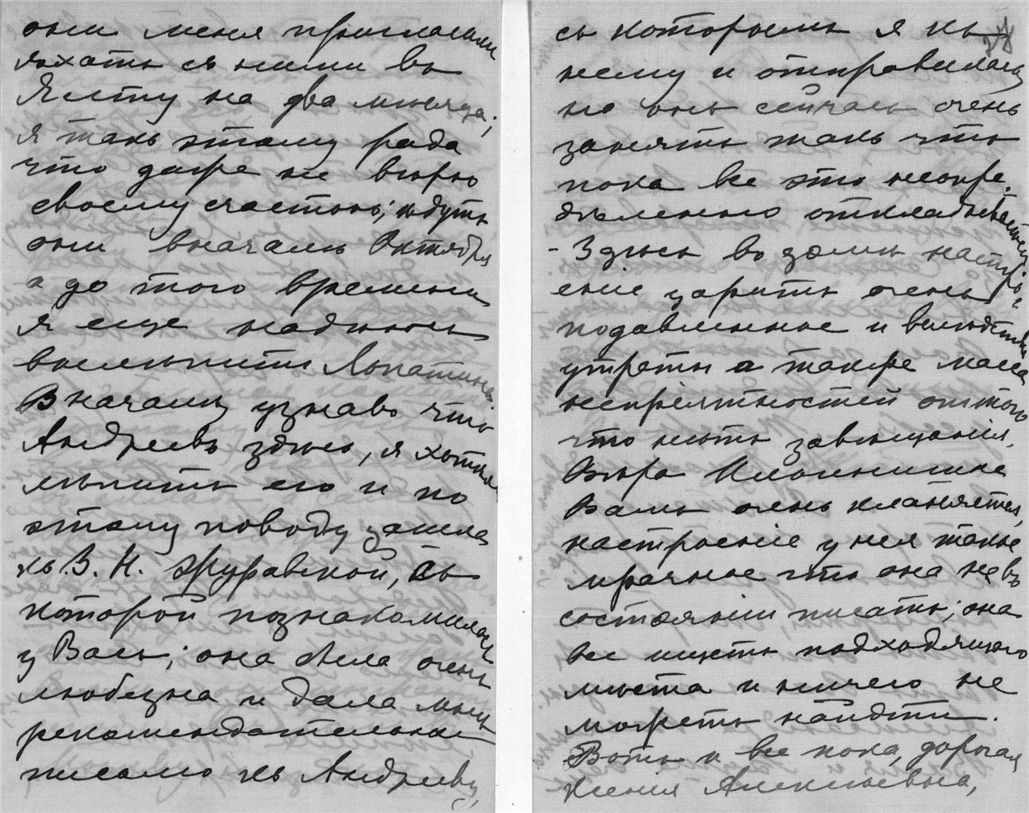 они меня пригласили
ѣхать съ ними въ
Ялту на два мѣсяца;
я такъ этому рада
что даже не вѣрю
своему счастью; ѣдутъ
они вначалѣ Октября
а до того времени
я еще надѣюсь
вылѣпить Лопатина.
Вначалѣ узнавъ что
Андреевъ здѣсь, я хотѣла
лѣпить его и по
этому поводу зашла
къ В. Н. Журавской, съ
которой познакомилась
у Васъ; она была очень
любезна и дала мнѣ
рекомендательное
письмо къ Андрееву,
съ которымъ я къ
нему и отправилась
но онъ сейчасъ очень
занятъ такъ что
пока все это неопре-
дѣленно откладывается
- Здѣсь въ домѣ настро-
еніе царитъ очень
подавленное и вслѣдствіи
утраты а также масса
непріятностей оттого
что нѣтъ завѣщанія.
Вѣра Ильинишна
Вамъ очень кланяется,
настроеніе у нея такое
мрачное что она не въ
состояніи писать; она
все ищетъ подходящаго
мѣста и ничего не
можетъ найдти.
Вотъ и все пока, дорогая
Ксенія Алексѣевна,